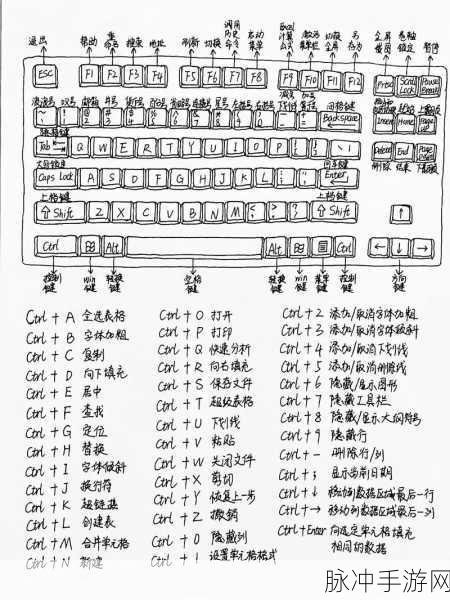 退出 帮助 重命名 搜索 地址 刷新 切换 调用历史命令 启动菜单 Excel计算公式 激活菜单栏 切换全屏 另存为 全屏截图 卷轴锁定 暂停
ESC F1 F2 F3 F4 F5 F6 F7 F8 F9 F10 F11 F12 Scroll Lock Pause
Backspace Insert Home Page up
Tab Q W E R T Y U I O P
Delete End Page
删除 结束
Caps Lock A S D F G H J K L Enter
上档键 上档键
Shift Z X C V B N M Shift ↑
Ctrl Alt Alt Ctrl ← ↓ →
控制键 win键 转换键 空格键 转换键 win键 菜单键 控制键 方向键
Ctrl + A 全选表格
Ctrl + B 字体加粗
Ctrl + C 复制
Ctrl + D 向下填充
Ctrl + E 居中
Ctrl + F 查找
Ctrl + G 定位
Ctrl + H 替换
Ctrl + I 字体倾斜
Ctrl + J 换行符
Ctrl + K 超链接
Ctrl + L 创建表
Ctrl + M 合并单元格
Ctrl + N 新建
Ctrl + O 打开
Ctrl + P 打印
Ctrl + Q 快速分析
Ctrl + R 向右填充
Ctrl + S 保存文件
Ctrl + T 超级表格
Ctrl + U 下划线
Ctrl + V 粘贴
Ctrl + W 关闭文件
Ctrl + X 剪切
Ctrl + Y 恢复上一步
Ctrl + Z 撤销
Ctrl + 0 隐藏列
Ctrl + 1 设置单元格格式
Ctrl + 2 添加/取消字体加粗
Ctrl + 3 添加/取消字体倾斜
Ctrl + 4 添加/取消下划线
Ctrl + 5 添加/取消删除线
Ctrl + 6 隐藏/显示图形
Ctrl + 7 隐藏工具栏
Ctrl + 8 隐藏/显示大纲符号
Ctrl + 9 隐藏行
Ctrl + - 删除行/列
Ctrl + ; 显示当前日期
Ctrl + ↓ 移动到数据区域最后一行
Ctrl + → 移动到数据区域最后一列
Ctrl+Enter 向选定单元格填充
相同的数据
脉冲手游网